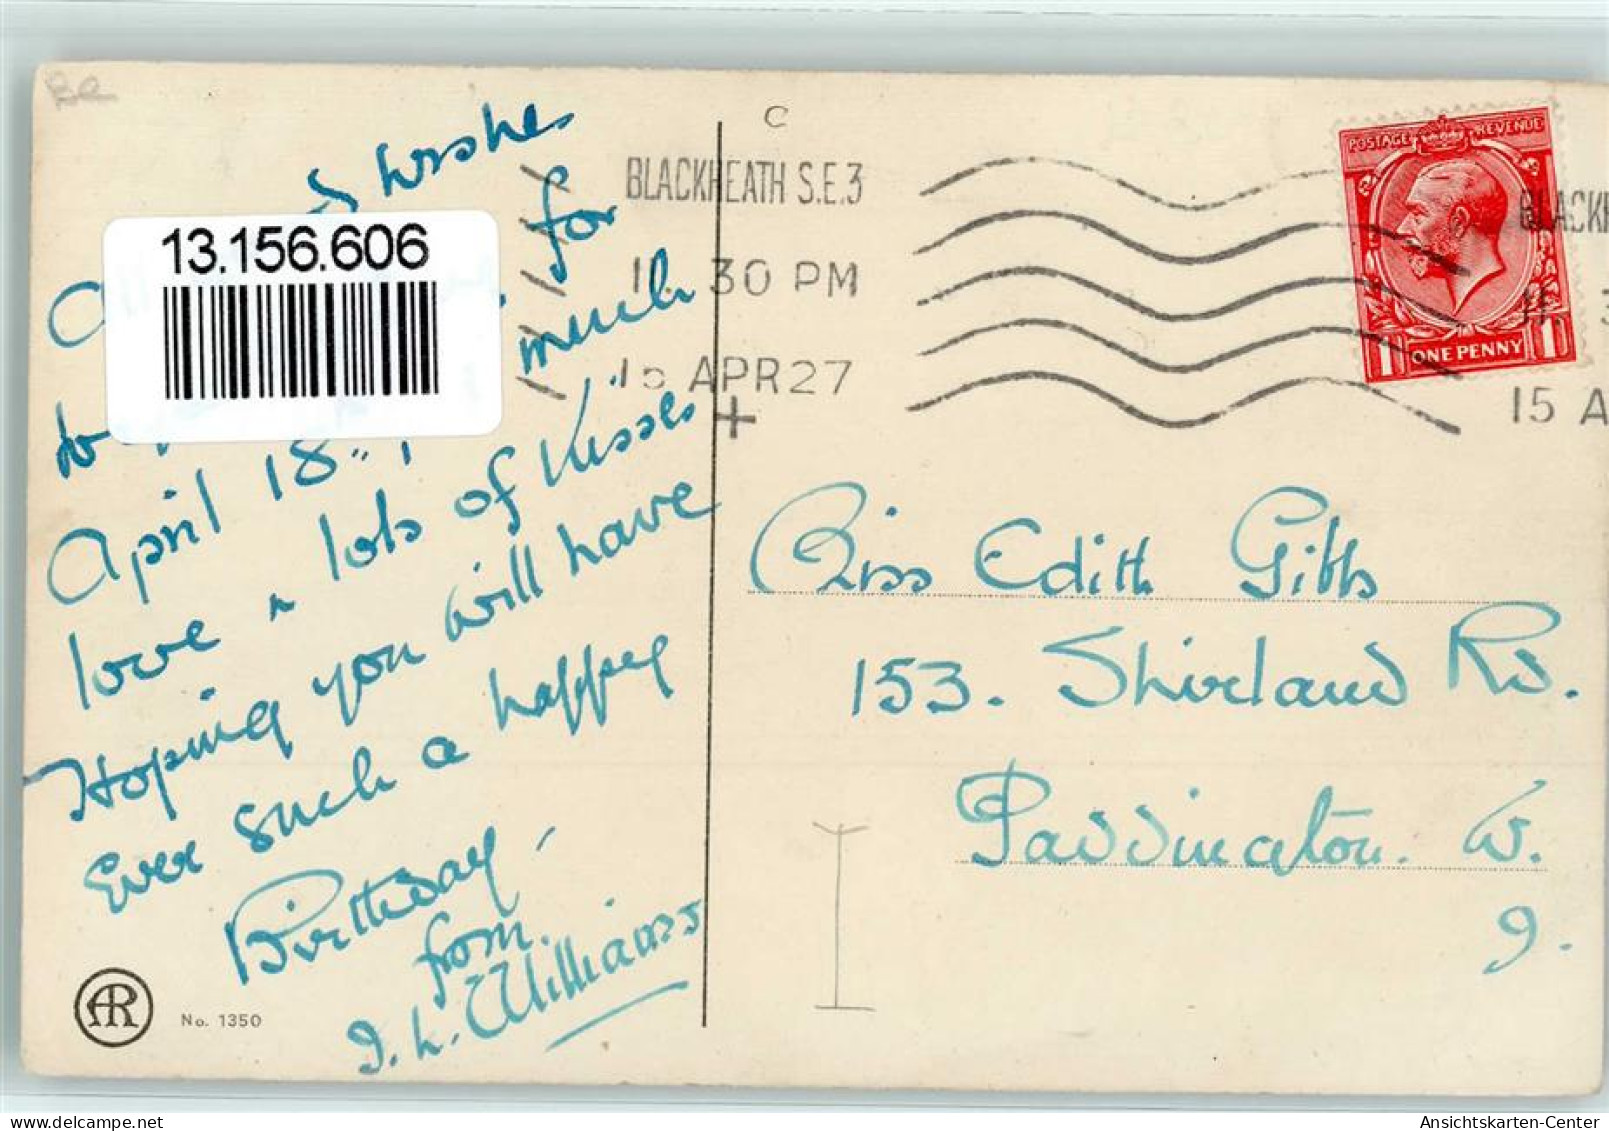 Be
C
wishes
13.156.606
for
much
April 18th
love & lots of Kisses
Hoping you will have
Ever such a happy
Birthday -
from
I. L. Williams
AR
No. 1350
BLACKHEATH S.E.3
11. 30 PM
15 APR 27
+
POSTAGE REVENUE
1 ONE PENNY 1
BLACKH
11. 3
15 A
Miss Edith Gibbs
153. Shirland Rd.
Paddington. W.
9.
Ansichtskarten-Center